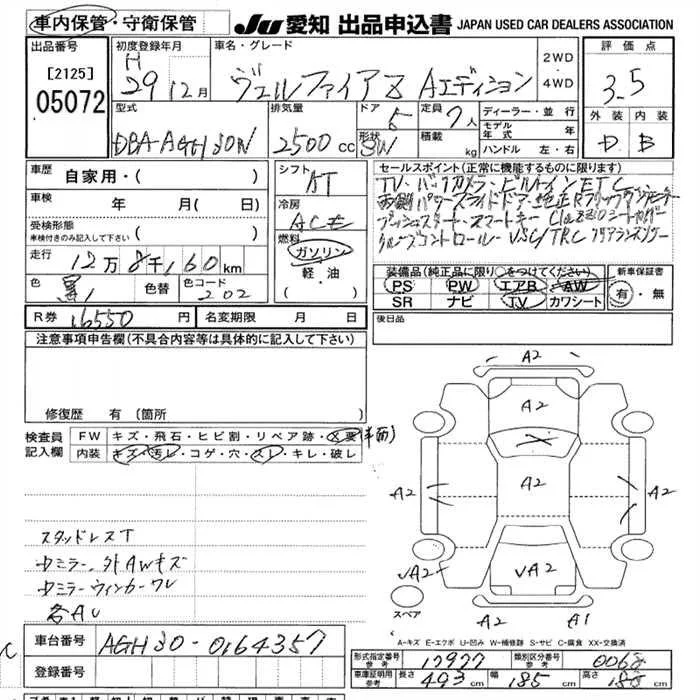 車内保管・守衛保管
JU 愛知 出品申込書 JAPAN USED CAR DEALERS ASSOCIATION
出品番号
[2125]
05072
初度登録年月
H
29 12月
車名・グレード
ヴェルファイア Z Aエディション
2WD
・
4WD
評価点
3.5
外装 内装
D B
型式
DBA-AGH30W
排気量
2500 cc
ドア 5
形状 SW
定員 7人
積載 kg
ディーラー・並行
モデル年式 年
ハンドル 左・右
車歴
自家用・( )
車検 年 月( )
受検形態
車検付きのみ記入して下さい ( )
走行 12万8千160km
色 黒 色替 色コード 202
シフト
AT
冷房
ACE
燃料
ガソリン
・
軽・油
( )
セールスポイント(正常に機能するものに限ります)
TV・バックカメラ・ビルトインETC
両側パワースライドドア・純正Rフリップダウンモニター
プッシュスタート・スマートキー Clazzioシートカバー
クルーズコントロール・VSC/TRC クリアランスソナー
装備品(純正品に限り○をつけてください)
PS PW エアB AW
SR ナビ TV カワシート
新車保証書
有・無
R券 16550円 名変期限 月 日
後日品
注意事項申告欄(不具合内容等は具体的に記入して下さい)
修復歴 有(箇所
検査員
記入欄
FW キズ・飛石・ヒビ割・リペア跡・X要(半面)
内装 キズ・汚レ・コゲ・穴・スレ・キレ・破レ
スタッドレスT
中ミラー、外AWキズ
中ミラーウィンカーワレ
各AU
A2
A2
A2
A2
A2
√A2
√A2
√A2
A2
A1
スペア
A-キズ E-エクボ U-凹み W-補修跡 S-サビ C-腐食 XX-交換済
車台番号 AGH30-0164357
登録番号
形式指定番号
参考
17927
類別区分番号
参考
車庫証明用
参考
長さ 493 cm 幅 185 cm 高さ cm